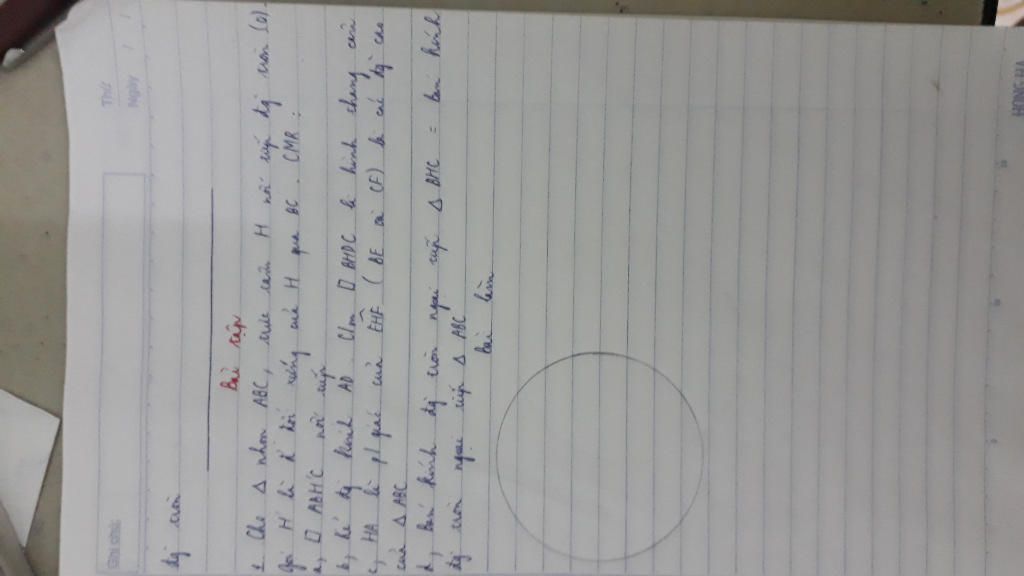 Thứ
Ngày / /
Ghi chú
đg tròn
Bài tập
1 Cho Δ nhọn ABC, trực tâm H nối tiếp đg tròn (O).
Gọi H' là đ' đối xứng của H qua BC. CMR:
a, □ ABH'C nối tiếp
b, Kẻ đg kính AD. Cm □ BH'DC là hình thang cân
c, HA là pl giác của EH'F (BE và CF) là các đg cao
của Δ ABC
d, Bán kính đg tròn ngoại tiếp Δ BHC = bán kính
đg tròn ngoại tiếp Δ ABC
Bài làm
HONG HA